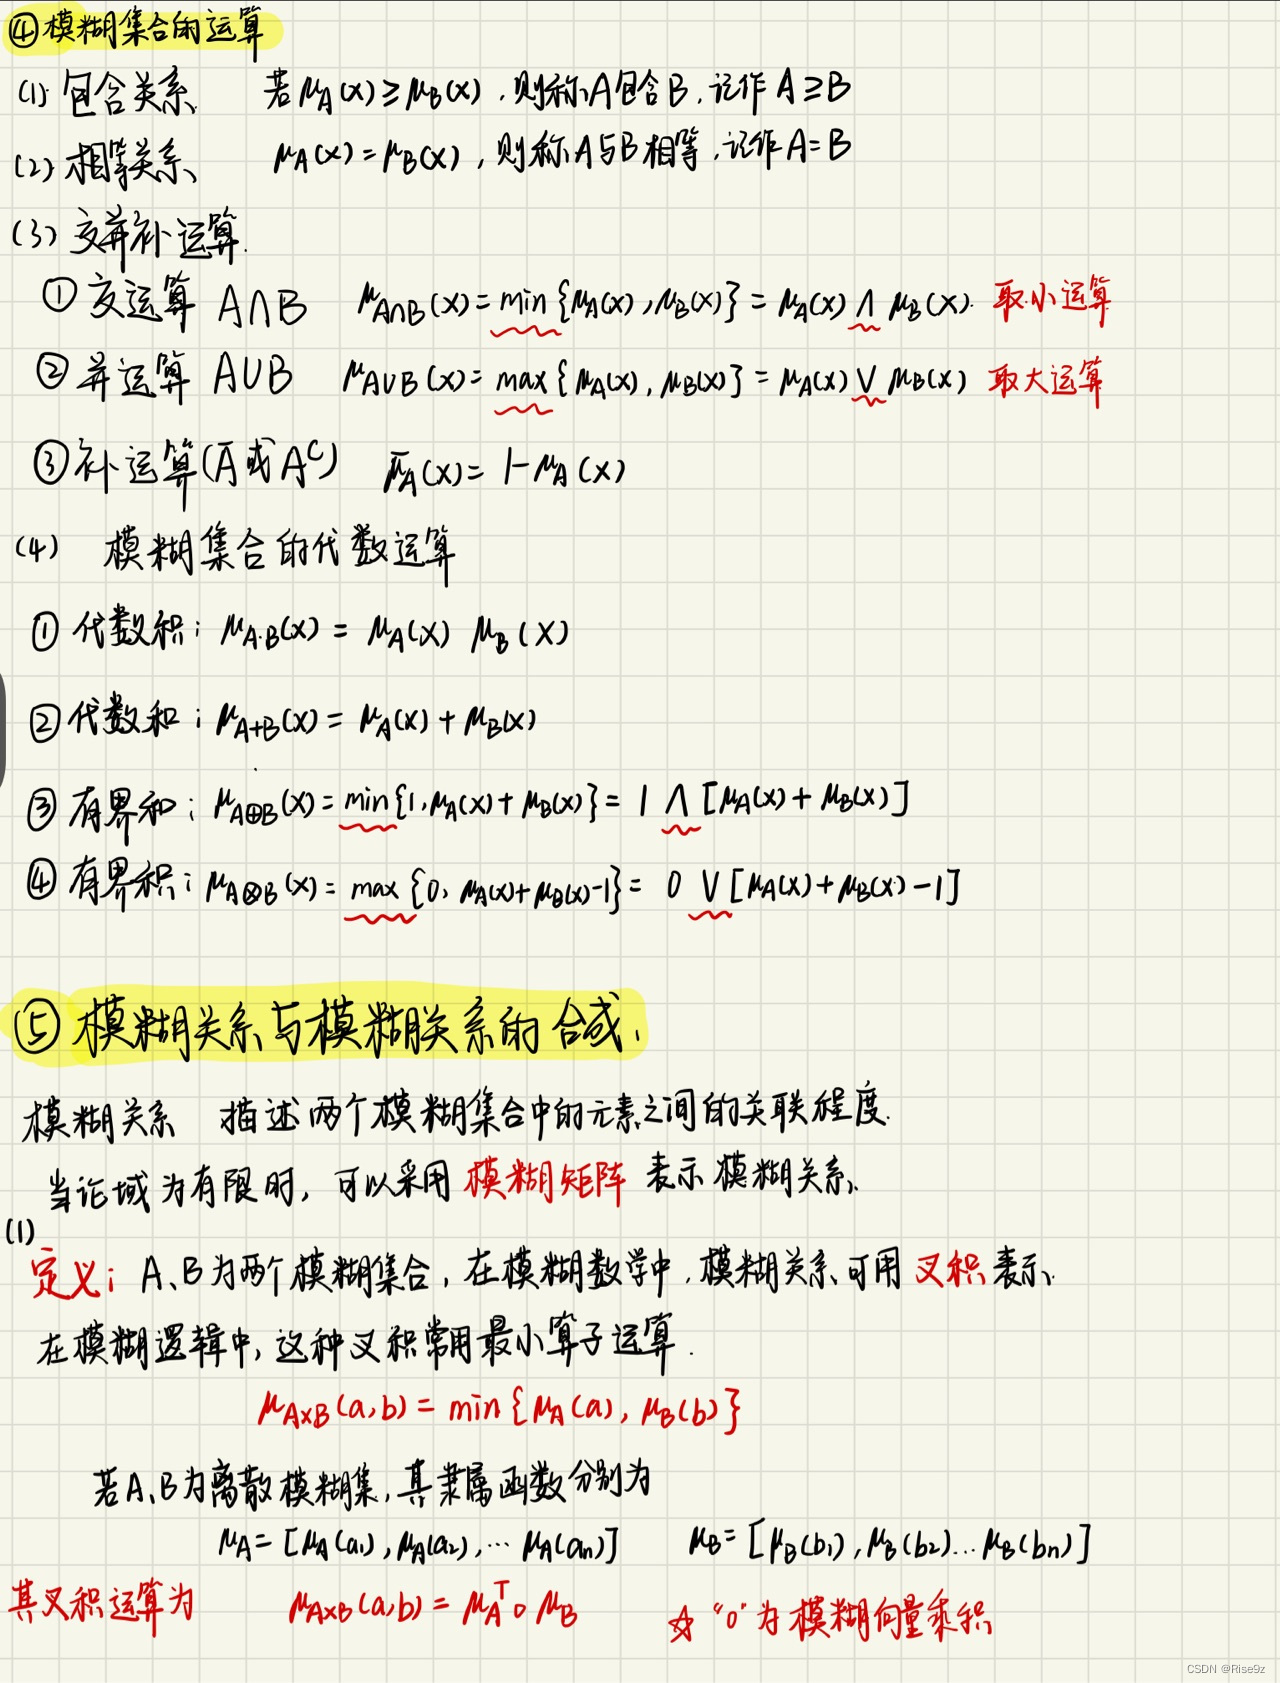 ④模糊集合的运算
(1) 包含关系 若μA(x)≥μB(x),则称A包含B,记作A≥B
(2) 相等关系 μA(x)=μB(x),则称A与B相等,记作A=B
(3) 交并补运算.
① 交运算 A∩B μA∩B(x)=min{μA(x),μB(x)}=μA(x)∧μB(x). 取小运算
② 并运算 A∪B μA∪B(x)=max{μA(x),μB(x)}=μA(x)∨μB(x) 取大运算
③补运算(Ā或Aᶜ) μ̄A(x)=1-μA(x)
(4) 模糊集合的代数运算
① 代数积: μA·B(x)=μA(x) μB(x)
② 代数和: μA+B(x)=μA(x)+μB(x)
③ 有界和: μA⊕B(x)=min{1,μA(x)+μB(x)}=1∧[μA(x)+μB(x)]
④ 有界积: μA⊗B(x)=max{0,μA(x)+μB(x)-1}=0∨[μA(x)+μB(x)-1]
⑤ 模糊关系与模糊关系的合成.
模糊关系 描述两个模糊集合中的元素之间的关联程度.
当论域为有限时,可以采用模糊矩阵表示模糊关系.
(1)
定义: A、B为两个模糊集合,在模糊数学中,模糊关系可用叉积表示.
在模糊逻辑中,这种叉积常用最小算子运算.
μA×B(a,b)=min{μA(a),μB(b)}
若A、B为离散模糊集,其隶属函数分别为
μA=[μA(a1),μA(a2),…μA(an)] μB=[μB(b1),μB(b2)…μB(bn)]
其叉积运算为 μA×B(a,b)=μAᵀ∘μB ☆ "∘"为模糊向量乘积
CSDN @Rise9z